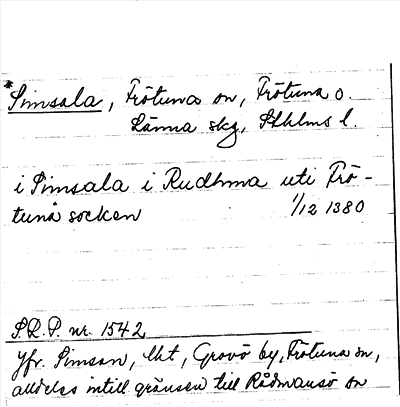 *Simsala, Frötuna sn, Frötuna o.
Länna skg, Sthlms l.
i Simsala i Rudhma uti Frö-
tuna socken 1/12 1380
S.R.P. nr. 1542
Jfr. Simsan, lht, Grovö by, Frötuna sn,
alldeles intill gränsen till Rådmansö sn